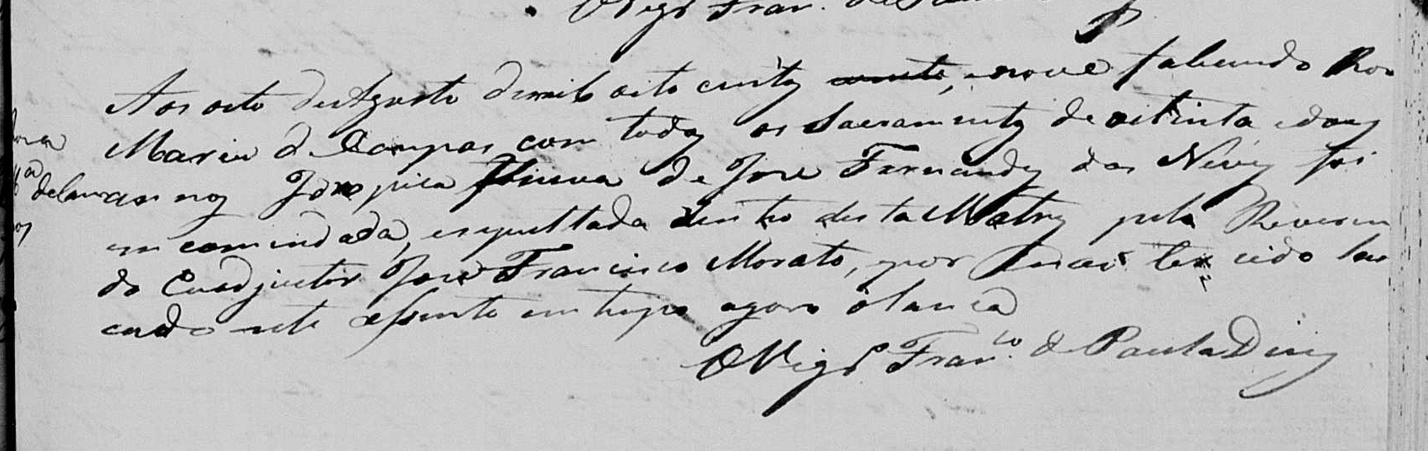 O Vigr.o Fran.co de Paula
Aos oito de Agosto de mil oito centos vinte, e nove faleceu do
Maria de Campos com todos os Sacramentos de oitinta e dous
annos viuva de Jose Fernandes das Neves foi
em comendada, e sepultada dentro desta Matriz pelo Reveren
do Cuadjuctor Jose Francisco Morato, por nao ter sido lan
cado este assento em tempo agora o lanca
O Vigr.o Fran.co de Paula Diniz